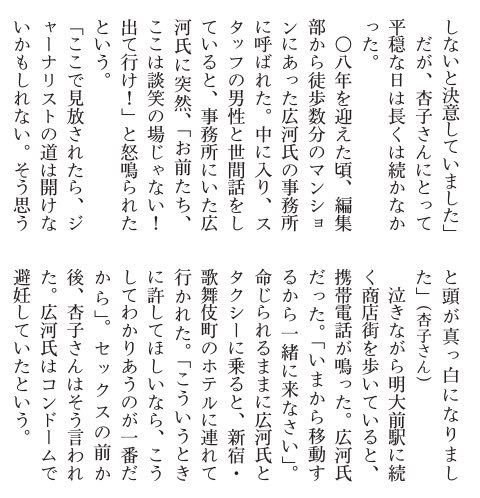 しないと決意していました」
　だが、杏子さんにとって
平穏な日は長くは続かなか
った。
　〇八年を迎えた頃、編集
部から徒歩数分のマンショ
ンにあった広河氏の事務所
に呼ばれた。中に入り、ス
タッフの男性と世間話をし
ていると、事務所にいた広
河氏に突然、「お前たち、
ここは談笑の場じゃない！
出て行け！」と怒鳴られた
という。
「ここで見放されたら、ジ
ャーナリストの道は開けな
いかもしれない。そう思う
と頭が真っ白になりまし
た」（杏子さん）
　泣きながら明大前駅に続
く商店街を歩いていると、
携帯電話が鳴った。広河氏
だった。「いまから移動す
るから一緒に来なさい」。
命じられるままに広河氏と
タクシーに乗ると、新宿・
歌舞伎町のホテルに連れて
行かれた。「こういうとき
に許してほしいなら、こう
してわかりあうのが一番だ
から」。セックスの前か
後、杏子さんはそう言われ
た。広河氏はコンドームで
避妊していたという。